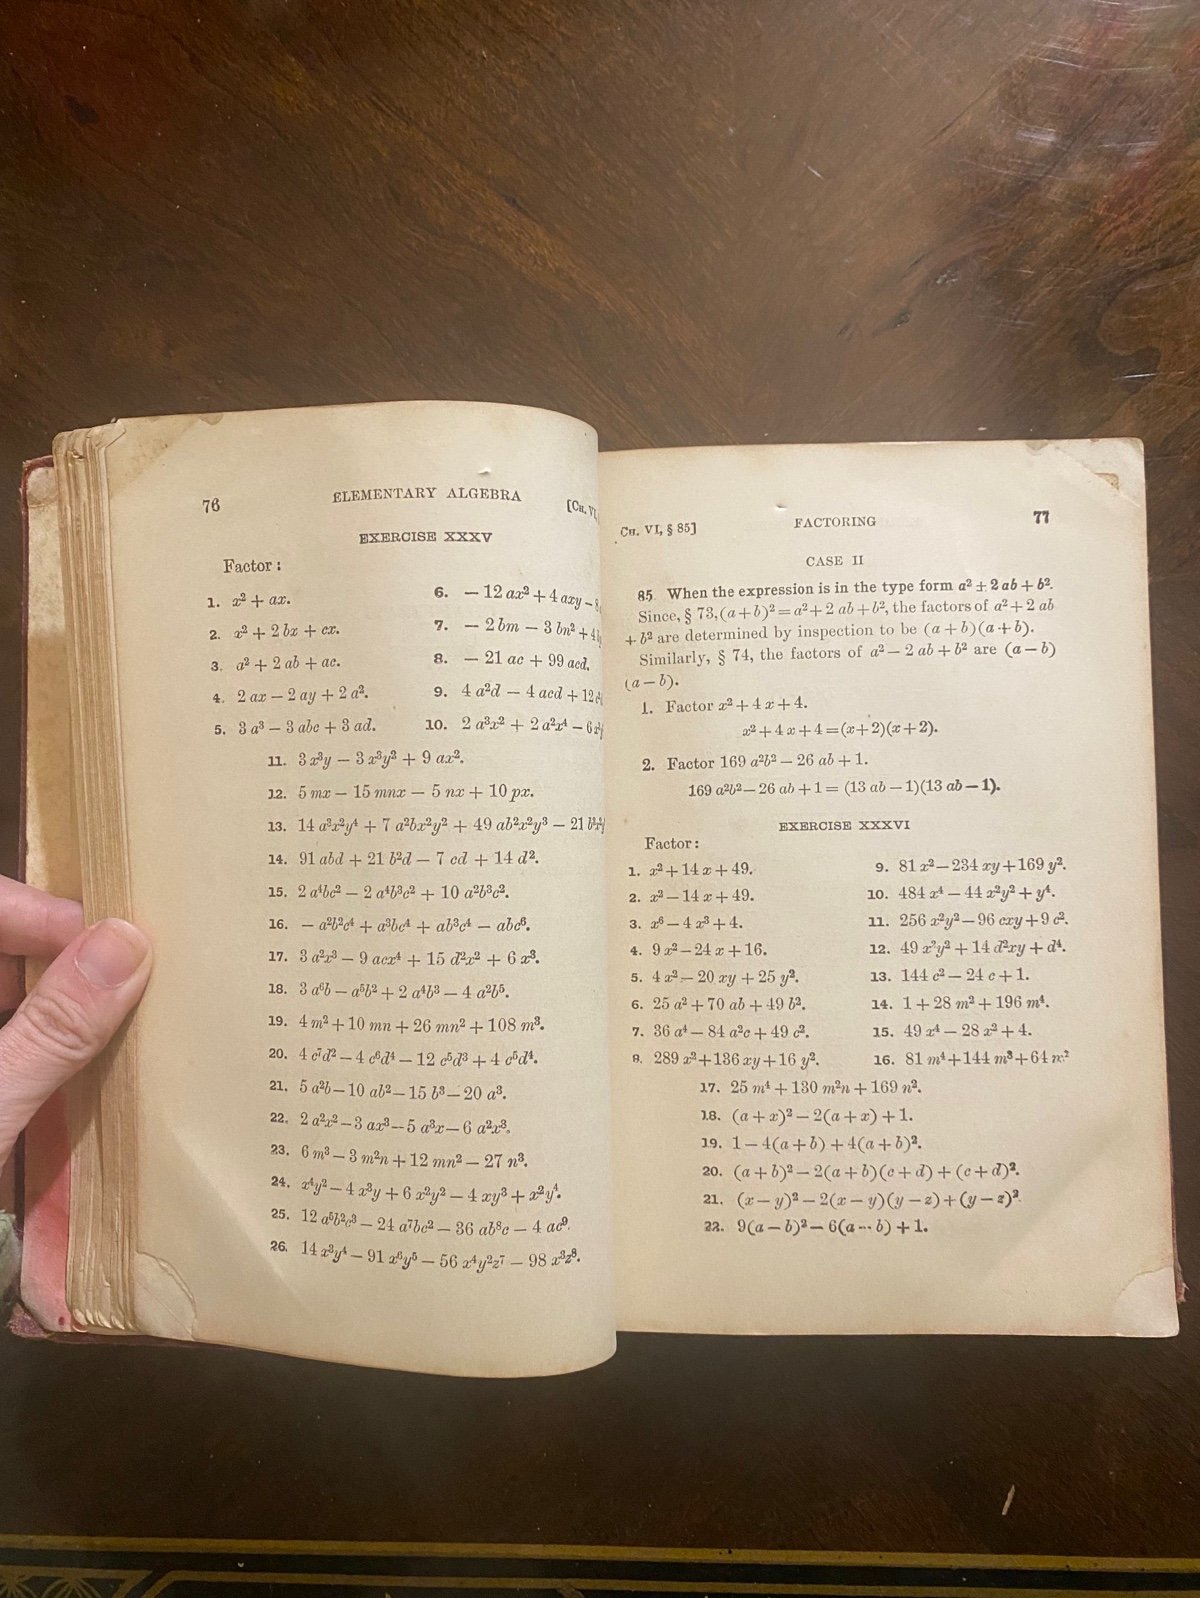 76 ELEMENTARY ALGEBRA [CH. VI,
EXERCISE XXXV
Factor:
1. x² + ax.
2. x² + 2 bx + cx.
3. a² + 2 ab + ac.
4. 2 ax − 2 ay + 2 a².
5. 3 a³ − 3 abc + 3 ad.
6. − 12 ax² + 4 axy −
7. − 2 bm − 3 bn² + 4
8. − 21 ac + 99 acd.
9. 4 a²d − 4 acd + 12
10. 2 a³x² + 2 a²x⁴ − 6
11. 3 x³y − 3 x³y² + 9 ax².
12. 5 mx − 15 mnx − 5 nx + 10 px.
13. 14 a³x²y⁴ + 7 a²bx²y² + 49 ab²x²y³ − 21
14. 91 abd + 21 b²d − 7 cd + 14 d².
15. 2 a⁴bc² − 2 a⁴b³c² + 10 a²b³c².
16. − a²b²c⁴ + a³bc⁴ + ab³c⁴ − abc⁶.
17. 3 a²x³ − 9 acx⁴ + 15 d²x² + 6 x³.
18. 3 a⁶b − a⁵b² + 2 a⁴b³ − 4 a²b⁵.
19. 4 m² + 10 mn + 26 mn² + 108 m³.
20. 4 c⁷d² − 4 c⁶d⁴ − 12 c⁵d³ + 4 c⁵d⁴.
21. 5 a²b − 10 ab² − 15 b³ − 20 a³.
22. 2 a²x² − 3 ax³ − 5 a³x − 6 a²x³.
23. 6 m³ − 3 m²n + 12 mn² − 27 n³.
24. x⁴y² − 4 x³y + 6 x²y² − 4 xy³ + x²y⁴.
25. 12 a⁵b²c³ − 24 a⁷bc² − 36 ab⁸c − 4 ac⁹.
26. 14 x³y⁴ − 91 x⁶y⁵ − 56 x⁴y²z⁷ − 98 x³z⁸.
CH. VI, § 85] FACTORING 77
CASE II
85. When the expression is in the type form a² ± 2 ab + b².
Since, § 73, (a + b)² = a² + 2 ab + b², the factors of a² + 2 ab
+ b² are determined by inspection to be (a + b)(a + b).
Similarly, § 74, the factors of a² − 2 ab + b² are (a − b)
(a − b).
1. Factor x² + 4 x + 4.
x² + 4 x + 4 = (x + 2)(x + 2).
2. Factor 169 a²b² − 26 ab + 1.
169 a²b² − 26 ab + 1 = (13 ab − 1)(13 ab − 1).
EXERCISE XXXVI
Factor:
1. x² + 14 x + 49.
2. x² − 14 x + 49.
3. x⁶ − 4 x³ + 4.
4. 9 x² − 24 x + 16.
5. 4 x² − 20 xy + 25 y².
6. 25 a² + 70 ab + 49 b².
7. 36 a⁴ − 84 a²c + 49 c².
8. 289 x² + 136 xy + 16 y².
9. 81 x² − 234 xy + 169 y².
10. 484 x⁴ − 44 x²y² + y⁴.
11. 256 x²y² − 96 cxy + 9 c².
12. 49 x²y² + 14 d²xy + d⁴.
13. 144 c² − 24 c + 1.
14. 1 + 28 m² + 196 m⁴.
15. 49 x⁴ − 28 x² + 4.
16. 81 m⁴ + 144 m³ + 64 m²
17. 25 m⁴ + 130 m²n + 169 n².
18. (a + x)² − 2(a + x) + 1.
19. 1 − 4(a + b) + 4(a + b)².
20. (a + b)² − 2(a + b)(c + d) + (c + d)².
21. (x − y)² − 2(x − y)(y − z) + (y − z)².
22. 9(a − b)² − 6(a − b) + 1.